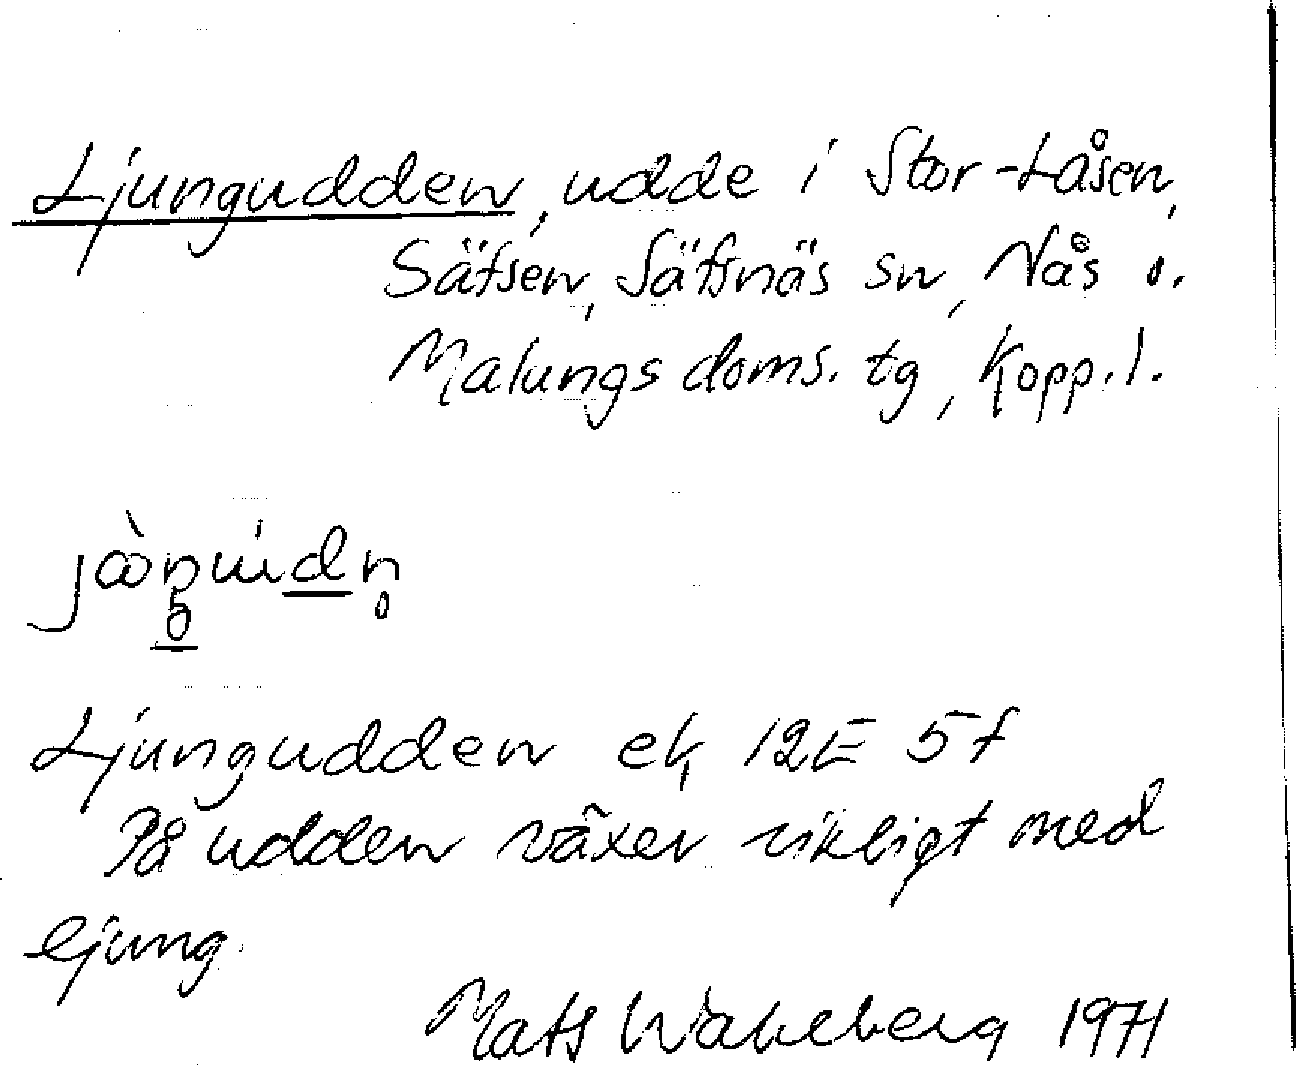 Ljungudden, udde i Stor-Låsen,
Säfsen, Säfsnäs sn, Nås o.
Malungs doms. tg, Kopp. l.
Ljungudden ek 12E 5f
På udden växer rikligt med
ljung.
Mats Wahlberg 1971